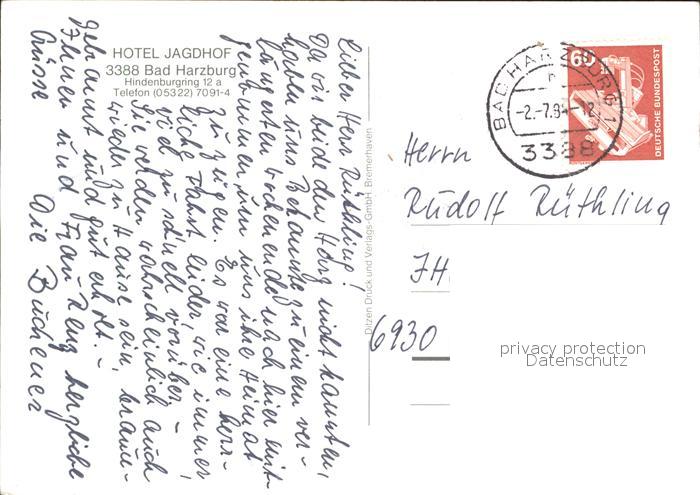 HOTEL JAGDHOF
3388 Bad Harzburg
Hindenburgring 12 a
Telefon (05322) 7091-4
Lieber Herr Rüthling!
Da wir beide den Harz nicht kannten,
haben uns Bekannte zu einem ver-
längerten Wochenende nach hier mit-
genommen um uns ihre Heimat
zu zeigen. Es war eine herr-
liche Fahrt leider, wie immer,
viel zu schnell vorüber. -
Sie werden wahrscheinlich auch
wieder zu Hause sein, braun-
gebrannt und gut erholt. -
Ihnen und Frau Renz herzliche
Grüsse Die Büchener
Ditzen Druck und Verlags-GmbH Bremerhaven
BAD HARZBURG 1
n
-2.-7.8 -12
3388
60
DEUTSCHE BUNDESPOST
Herrn
Rudolf Rüthling
JH
6930
privacy protection
Datenschutz